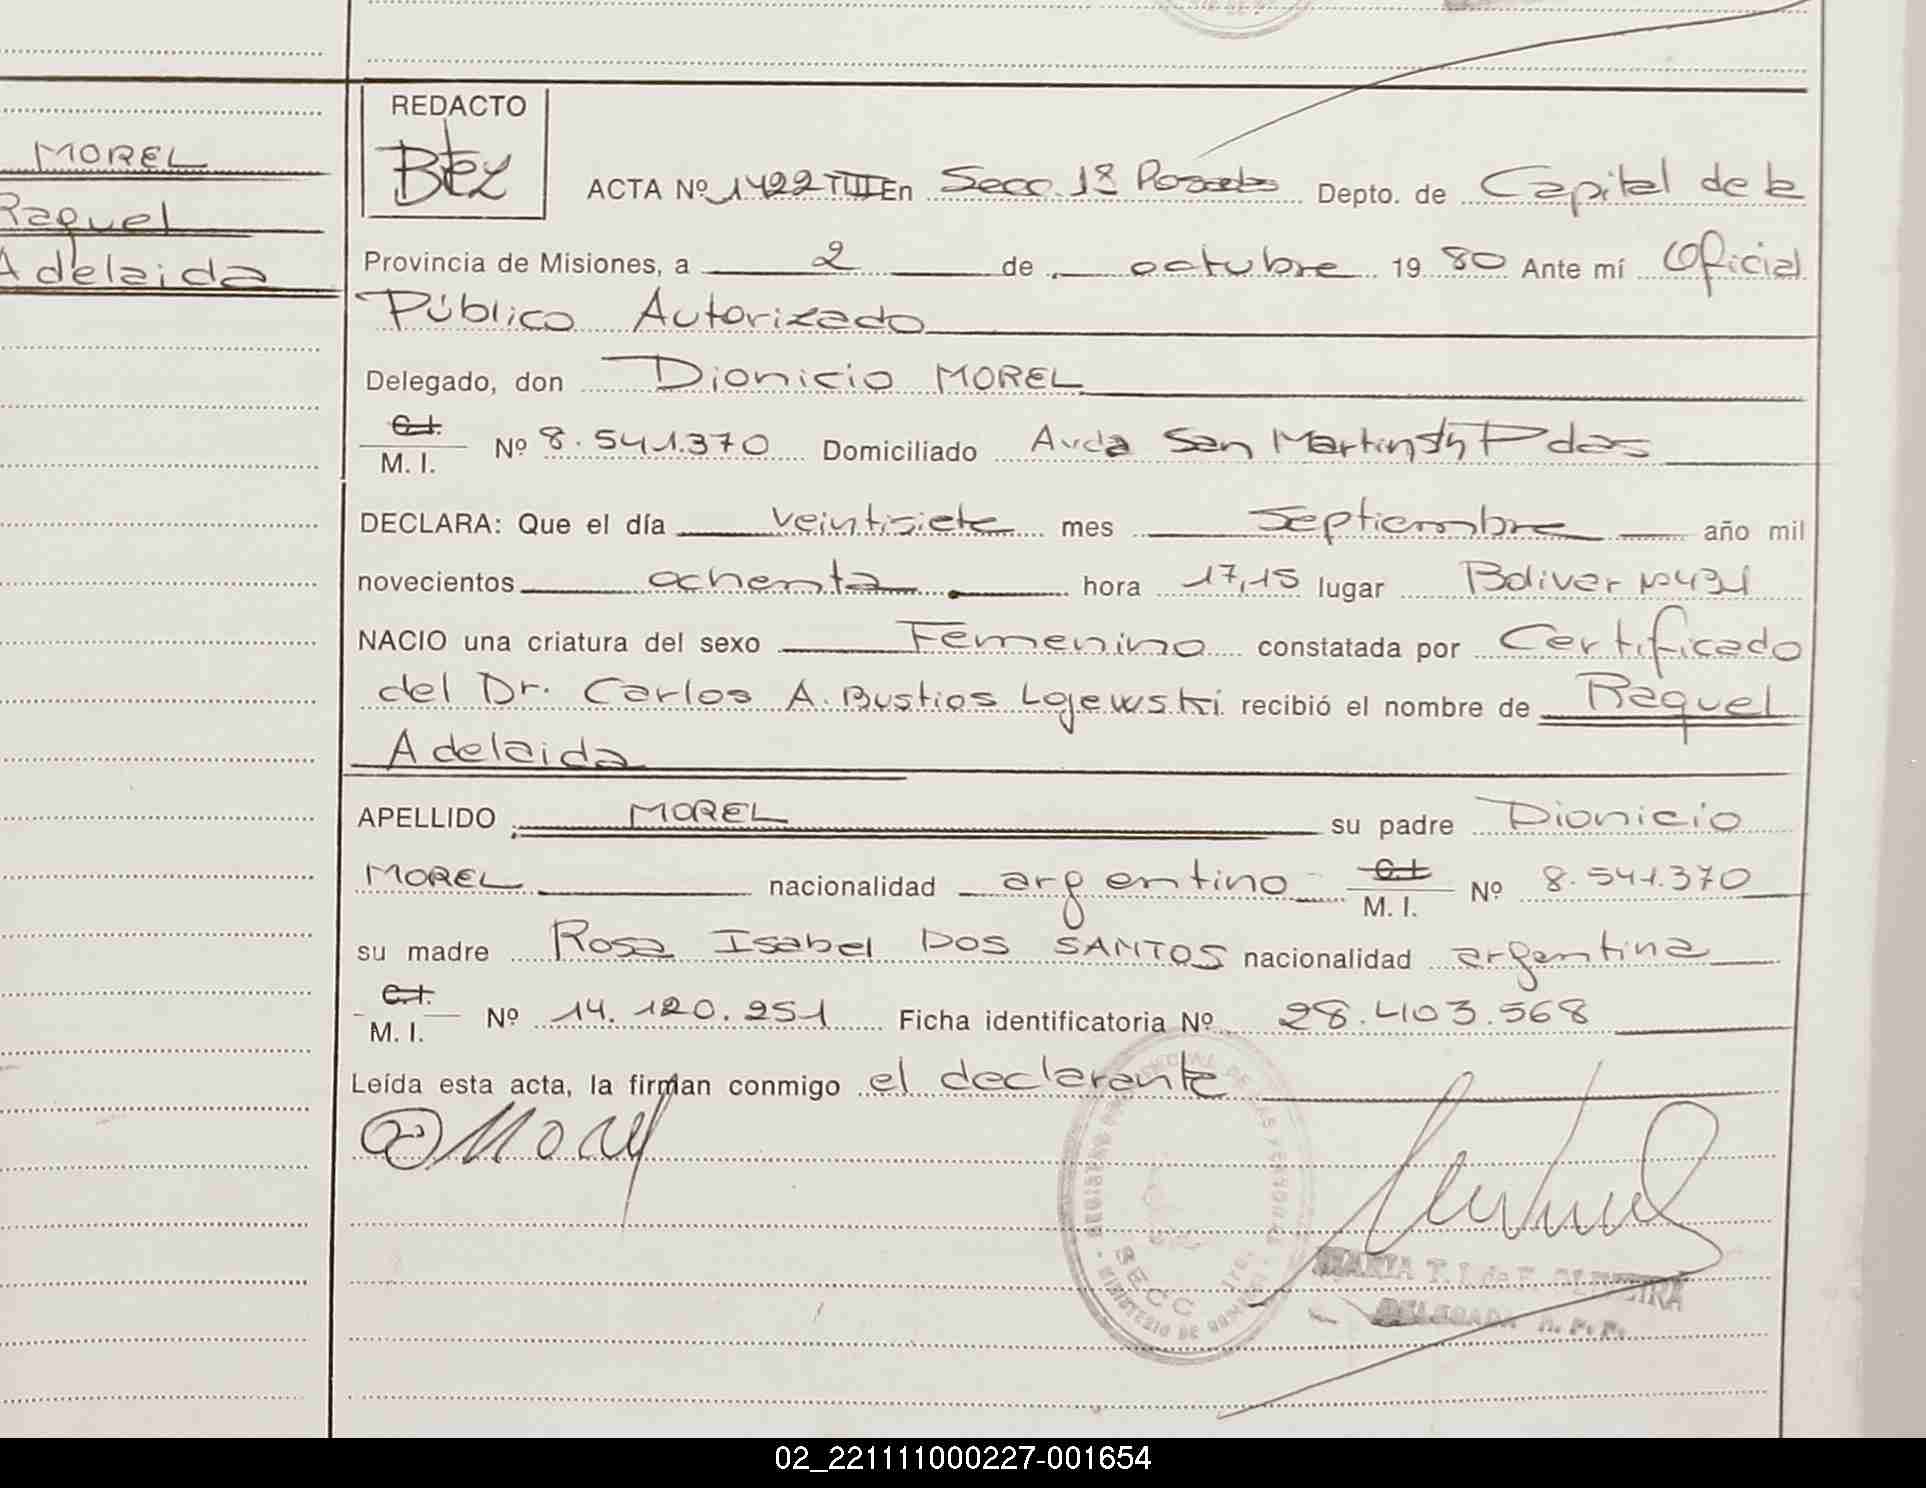 MOREL
Raquel
Adelaida
REDACTO
ACTA Nº 1422 TIII En Secc. 1ª Posadas Depto. de Capital de la
Provincia de Misiones, a 2 de octubre 1980 Ante mí Oficial
Público Autorizado
Delegado, don Dionicio MOREL
C.I.
M. I. Nº 8.541.370 Domiciliado Avda San Martin s/n Pdas
DECLARA: Que el día veintisiete mes Septiembre año mil
novecientos ochenta hora 17,15 lugar Bolivar Nº431
NACIO una criatura del sexo Femenino constatada por Certificado
del Dr. Carlos A. Bustios Lojewski recibió el nombre de Raquel
Adelaida
APELLIDO MOREL su padre Dionicio
MOREL nacionalidad argentino C.I.
M. I. Nº 8.541.370
su madre Rosa Isabel DOS SANTOS nacionalidad argentina
C.I.
M. I. Nº 14.120.251 Ficha identificatoria Nº 28.403.568
Leída esta acta, la firman conmigo el declarante
Morel
MARIA T. I. de F. OLIVEIRA
DELEGADA R. P. P.
02_221111000227-001654